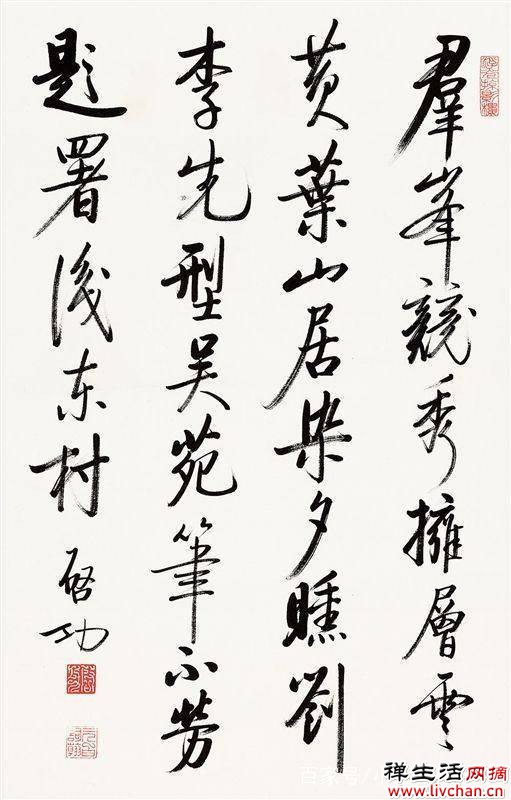 羣峯競秀擁層雲
黄葉山居染夕曛劉
李先型吳苑筆不勞
題署後東村
啓功
百家号
禅生活网摘
www.livchan.cn